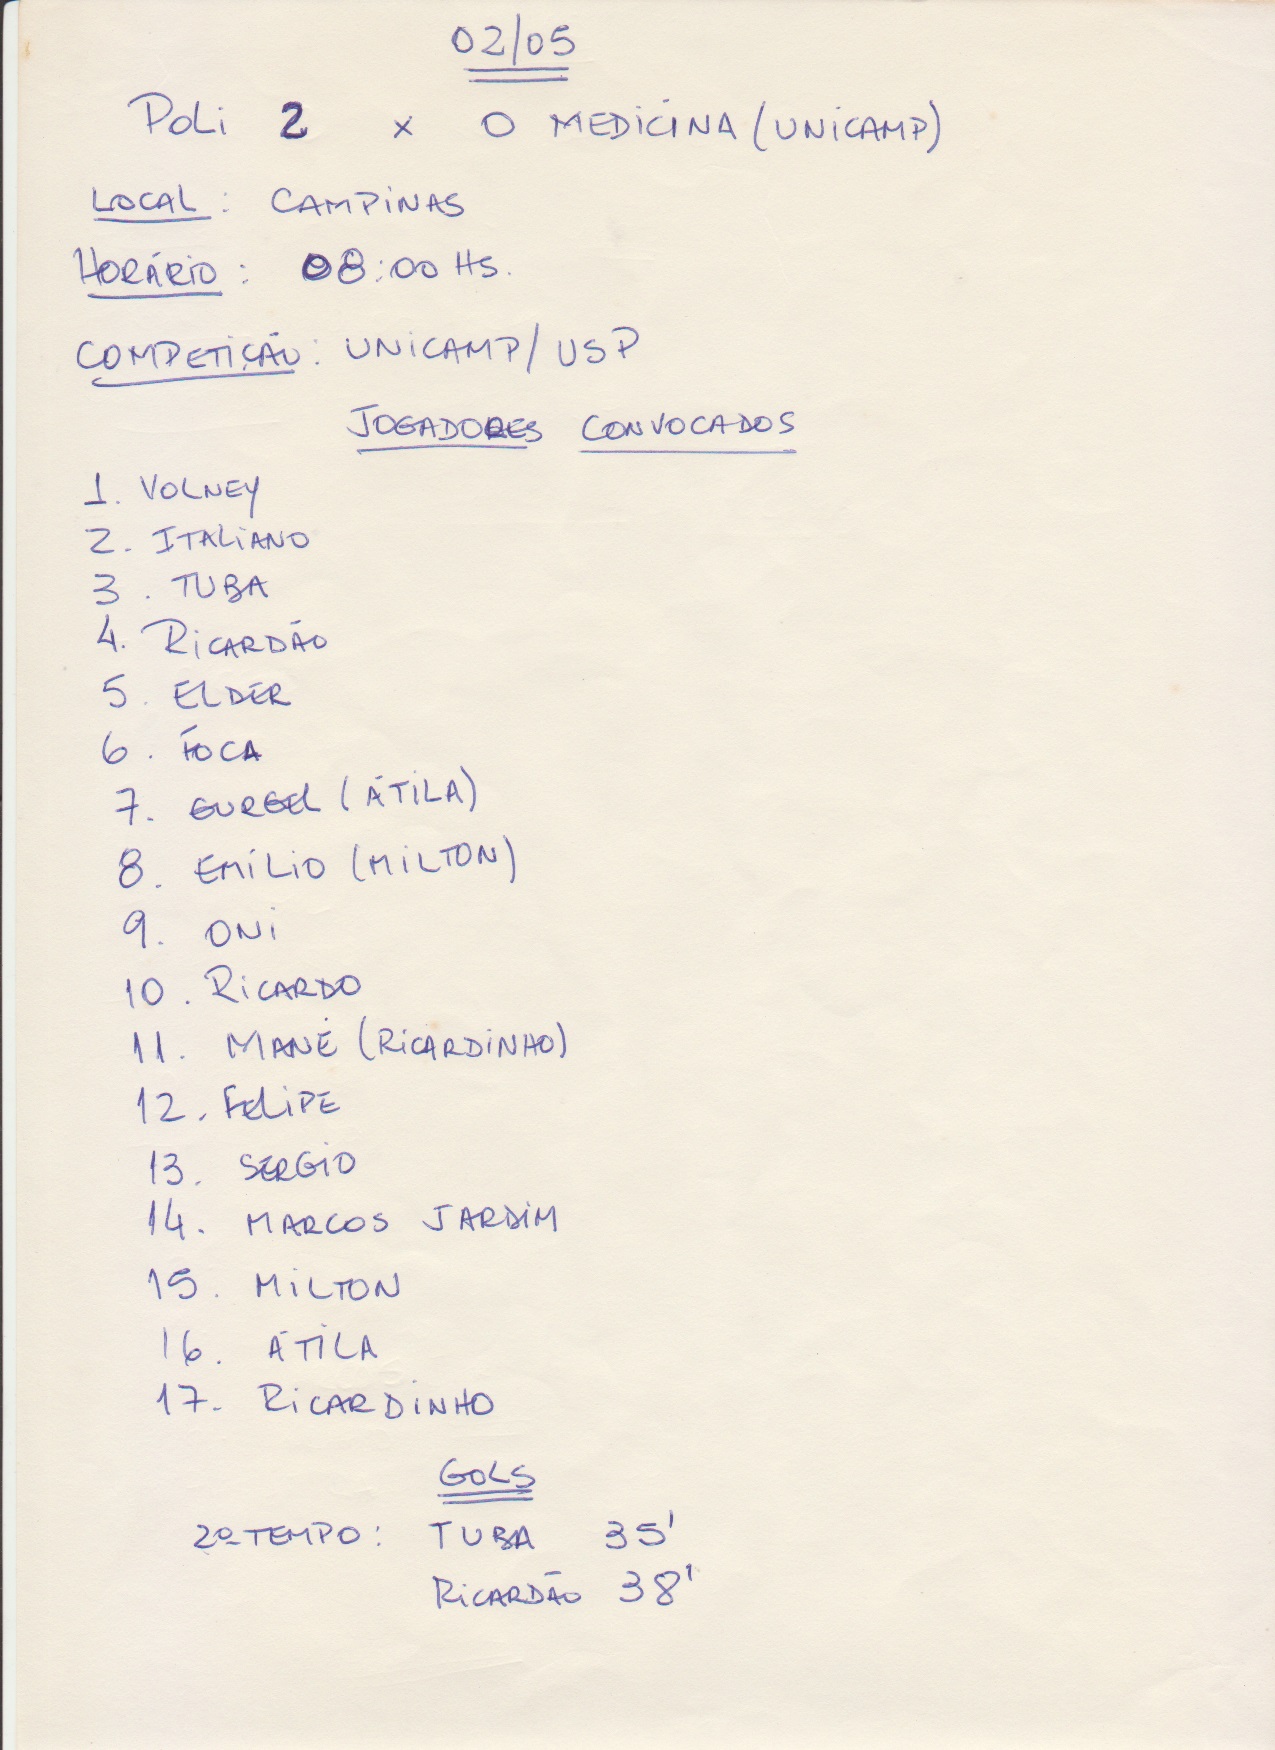 02/05
POLI 2 x 0 MEDICINA (UNICAMP)
LOCAL: CAMPINAS
HORÁRIO: 08:00 HS.
COMPETIÇÃO: UNICAMP/USP
JOGADORES CONVOCADOS
1. VOLNEY
2. ITALIANO
3. TUBA
4. RICARDÃO
5. ELDER
6. FOCA
7. GURGEL (ÁTILA)
8. EMÍLIO (MILTON)
9. ONI
10. RICARDO
11. MANÉ (RICARDINHO)
12. FELIPE
13. SERGIO
14. MARCOS JARDIM
15. MILTON
16. ÁTILA
17. RICARDINHO
GOLS
2º TEMPO: TUBA 35'
RICARDÃO 38'